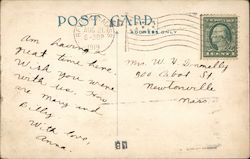 POST CARD.
AUG 21
6-30P
1919
ADDRESS ONLY
Am having a
great time here.
Wish you were
with us. You
are Mary and
Billy
With love,
Anna.
Mrs. W. H. Donnelly
300 Cabot St.
Newtonville
Mass.